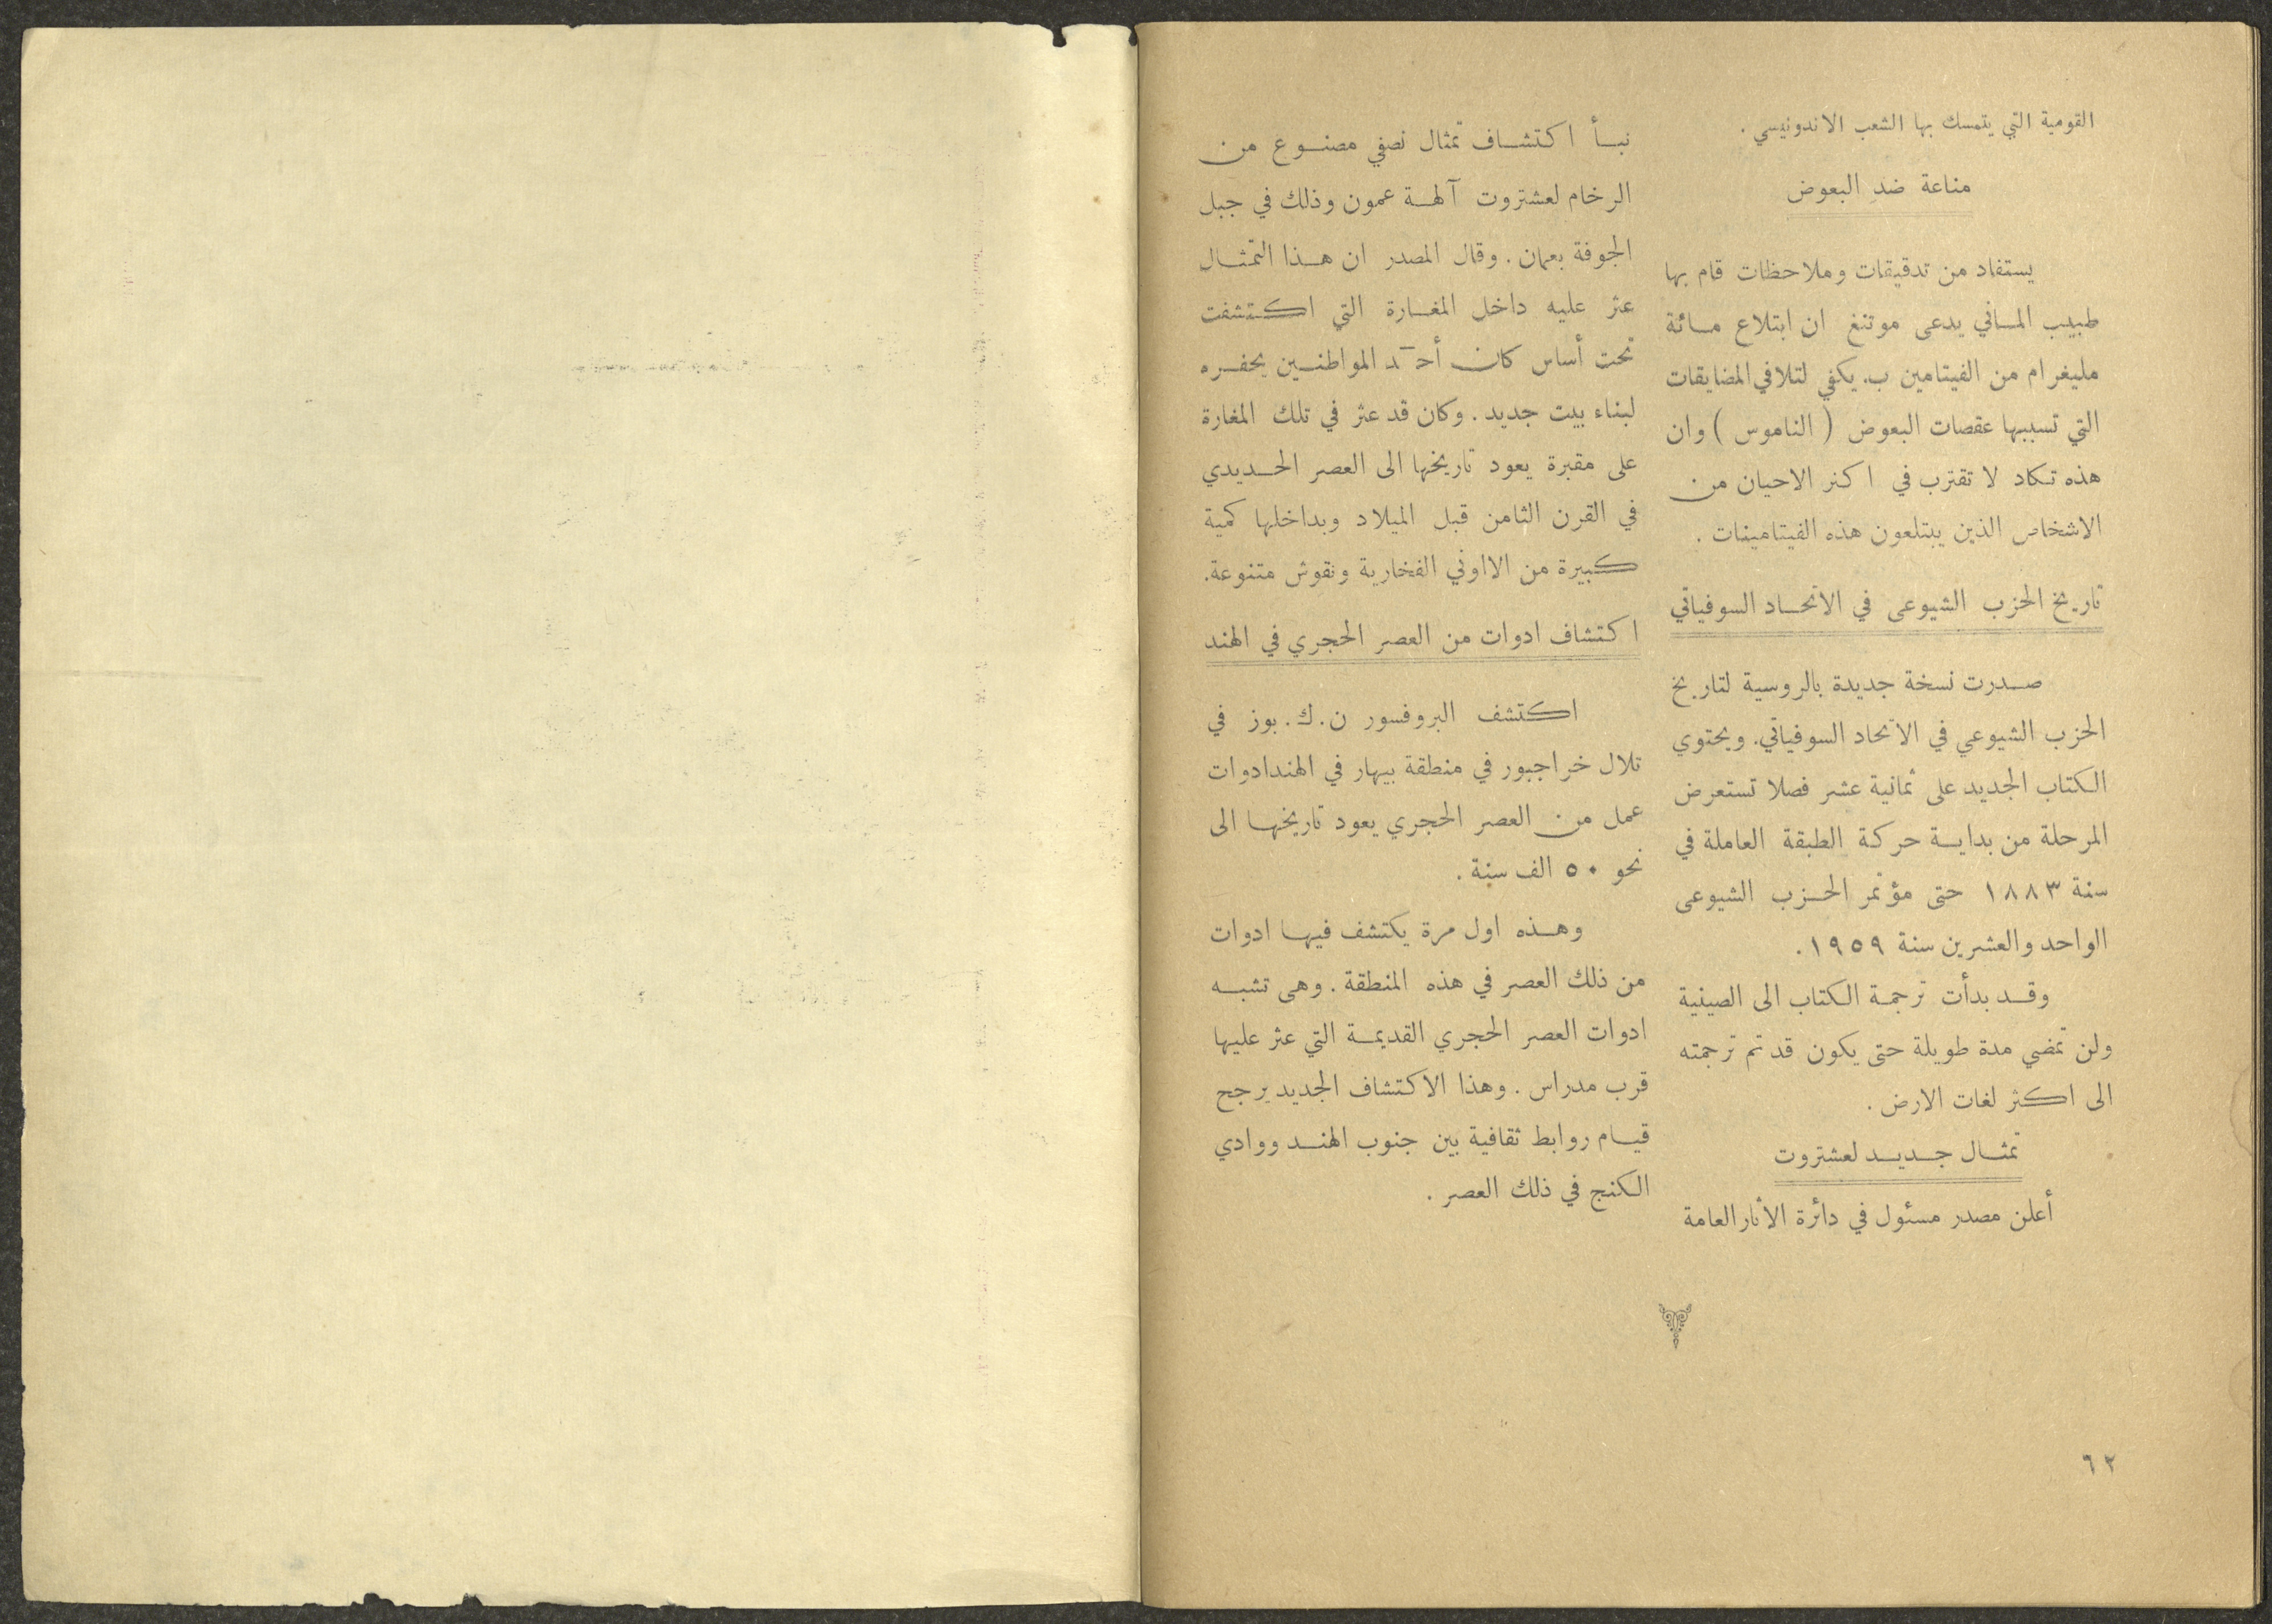 القومية التي يتمسك بها الشعب الاندونيسي .
مناعة ضد البعوض
يستفاد من تدقيقات وملاحظات قام بها
طبيب الماني يدعى موتنغ ان ابتلاع مائة
مليغرام من الفيتامين ب. يكفي لتلافي المضايقات
التي تسببها عقصات البعوض ( الناموس ) وان
هذه تكاد لا تقترب في اكنر الاحيان من
الاشخاص الذين يبتلعون هذه الفيتامينات .
تاريخ الحزب الشيوعى في الاتحاد السوفياتي
صدرت نسخة جديدة بالروسية لتاريخ
الحزب الشيوعي في الاتحاد السوفياتي. ويحتوي
الكتاب الجديد على ثمانية عشر فصلا تستعرض
المرحلة من بداية حركة الطبقة العاملة في
سنة ١٨٨٣ حتى مؤتمر الحزب الشيوعى
الواحد والعشرين سنة ١٩٥٩.
وقد بدأت ترجمة الكتاب الى الصينية
ولن تمضي مدة طويلة حتى يكون قد تم ترجمته
الى اكثر لغات الارض .
تمثال جديد لعشتروت
أعلن مصدر مسئول في دائرة الأثار العامة
نبأ اكتشاف تمثال نصفي مصنوع من
الرخام لعشتروت آلهة عمون وذلك في جبل
الجوفة بعمان. وقال المصدر ان هذا التمثال
عثر عليه داخل المغارة التي اكتشفت
تحت أساس كان أحد المواطنين يحفره
لبناء بيت جديد . وكان قد عثر في تلك المغارة
على مقبرة يعود تاريخها الى العصر الحديدي
في القرن الثامن قبل الميلاد وبداخلها كمية
كبيرة من الااوني الفخارية ونقوش متنوعة.
اكتشاف ادوات من العصر الحجري في الهند
اكتشف البروفسور ن. ك. بوز في
تلال خراجبور في منطقة بيهار في الهندادوات
عمل من العصر الحجري يعود تاريخها الى
نحو ٥٠ الف سنة .
وهذه اول مرة يكتشف فيها ادوات
من ذلك العصر في هذه المنطقة . وهى تشبه
ادوات العصر الحجري القديمة التي عثر عليها
قرب مدراس . وهذا الاكتشاف الجديد يرجح
قيام روابط ثقافية بين جنوب الهند ووادي
الكنج في ذلك العصر .
٦٢